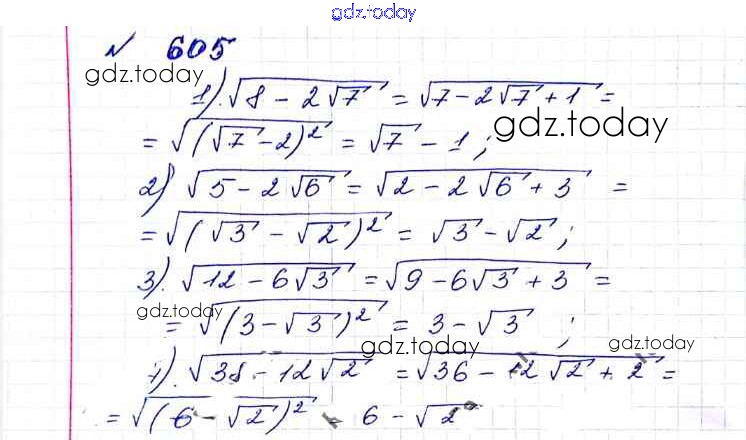 gdz.today
№ 605
gdz.today
1) √(8 - 2√7) = √(7 - 2√7 + 1) =
= √((√7 - 2)²) = √7 - 1;
gdz.today
2) √(5 - 2√6) = √(2 - 2√6 + 3) =
= √((√3 - √2)²) = √3 - √2;
3). √(12 - 6√3) = √(9 - 6√3 + 3) =
gdz.today
= √((3 - √3)²) = 3 - √3;
gdz.today
gdz.today
4). √(38 - 12√2) = √(36 - 12√2 + 2) =
= √((6 - √2)²) = 6 - √2